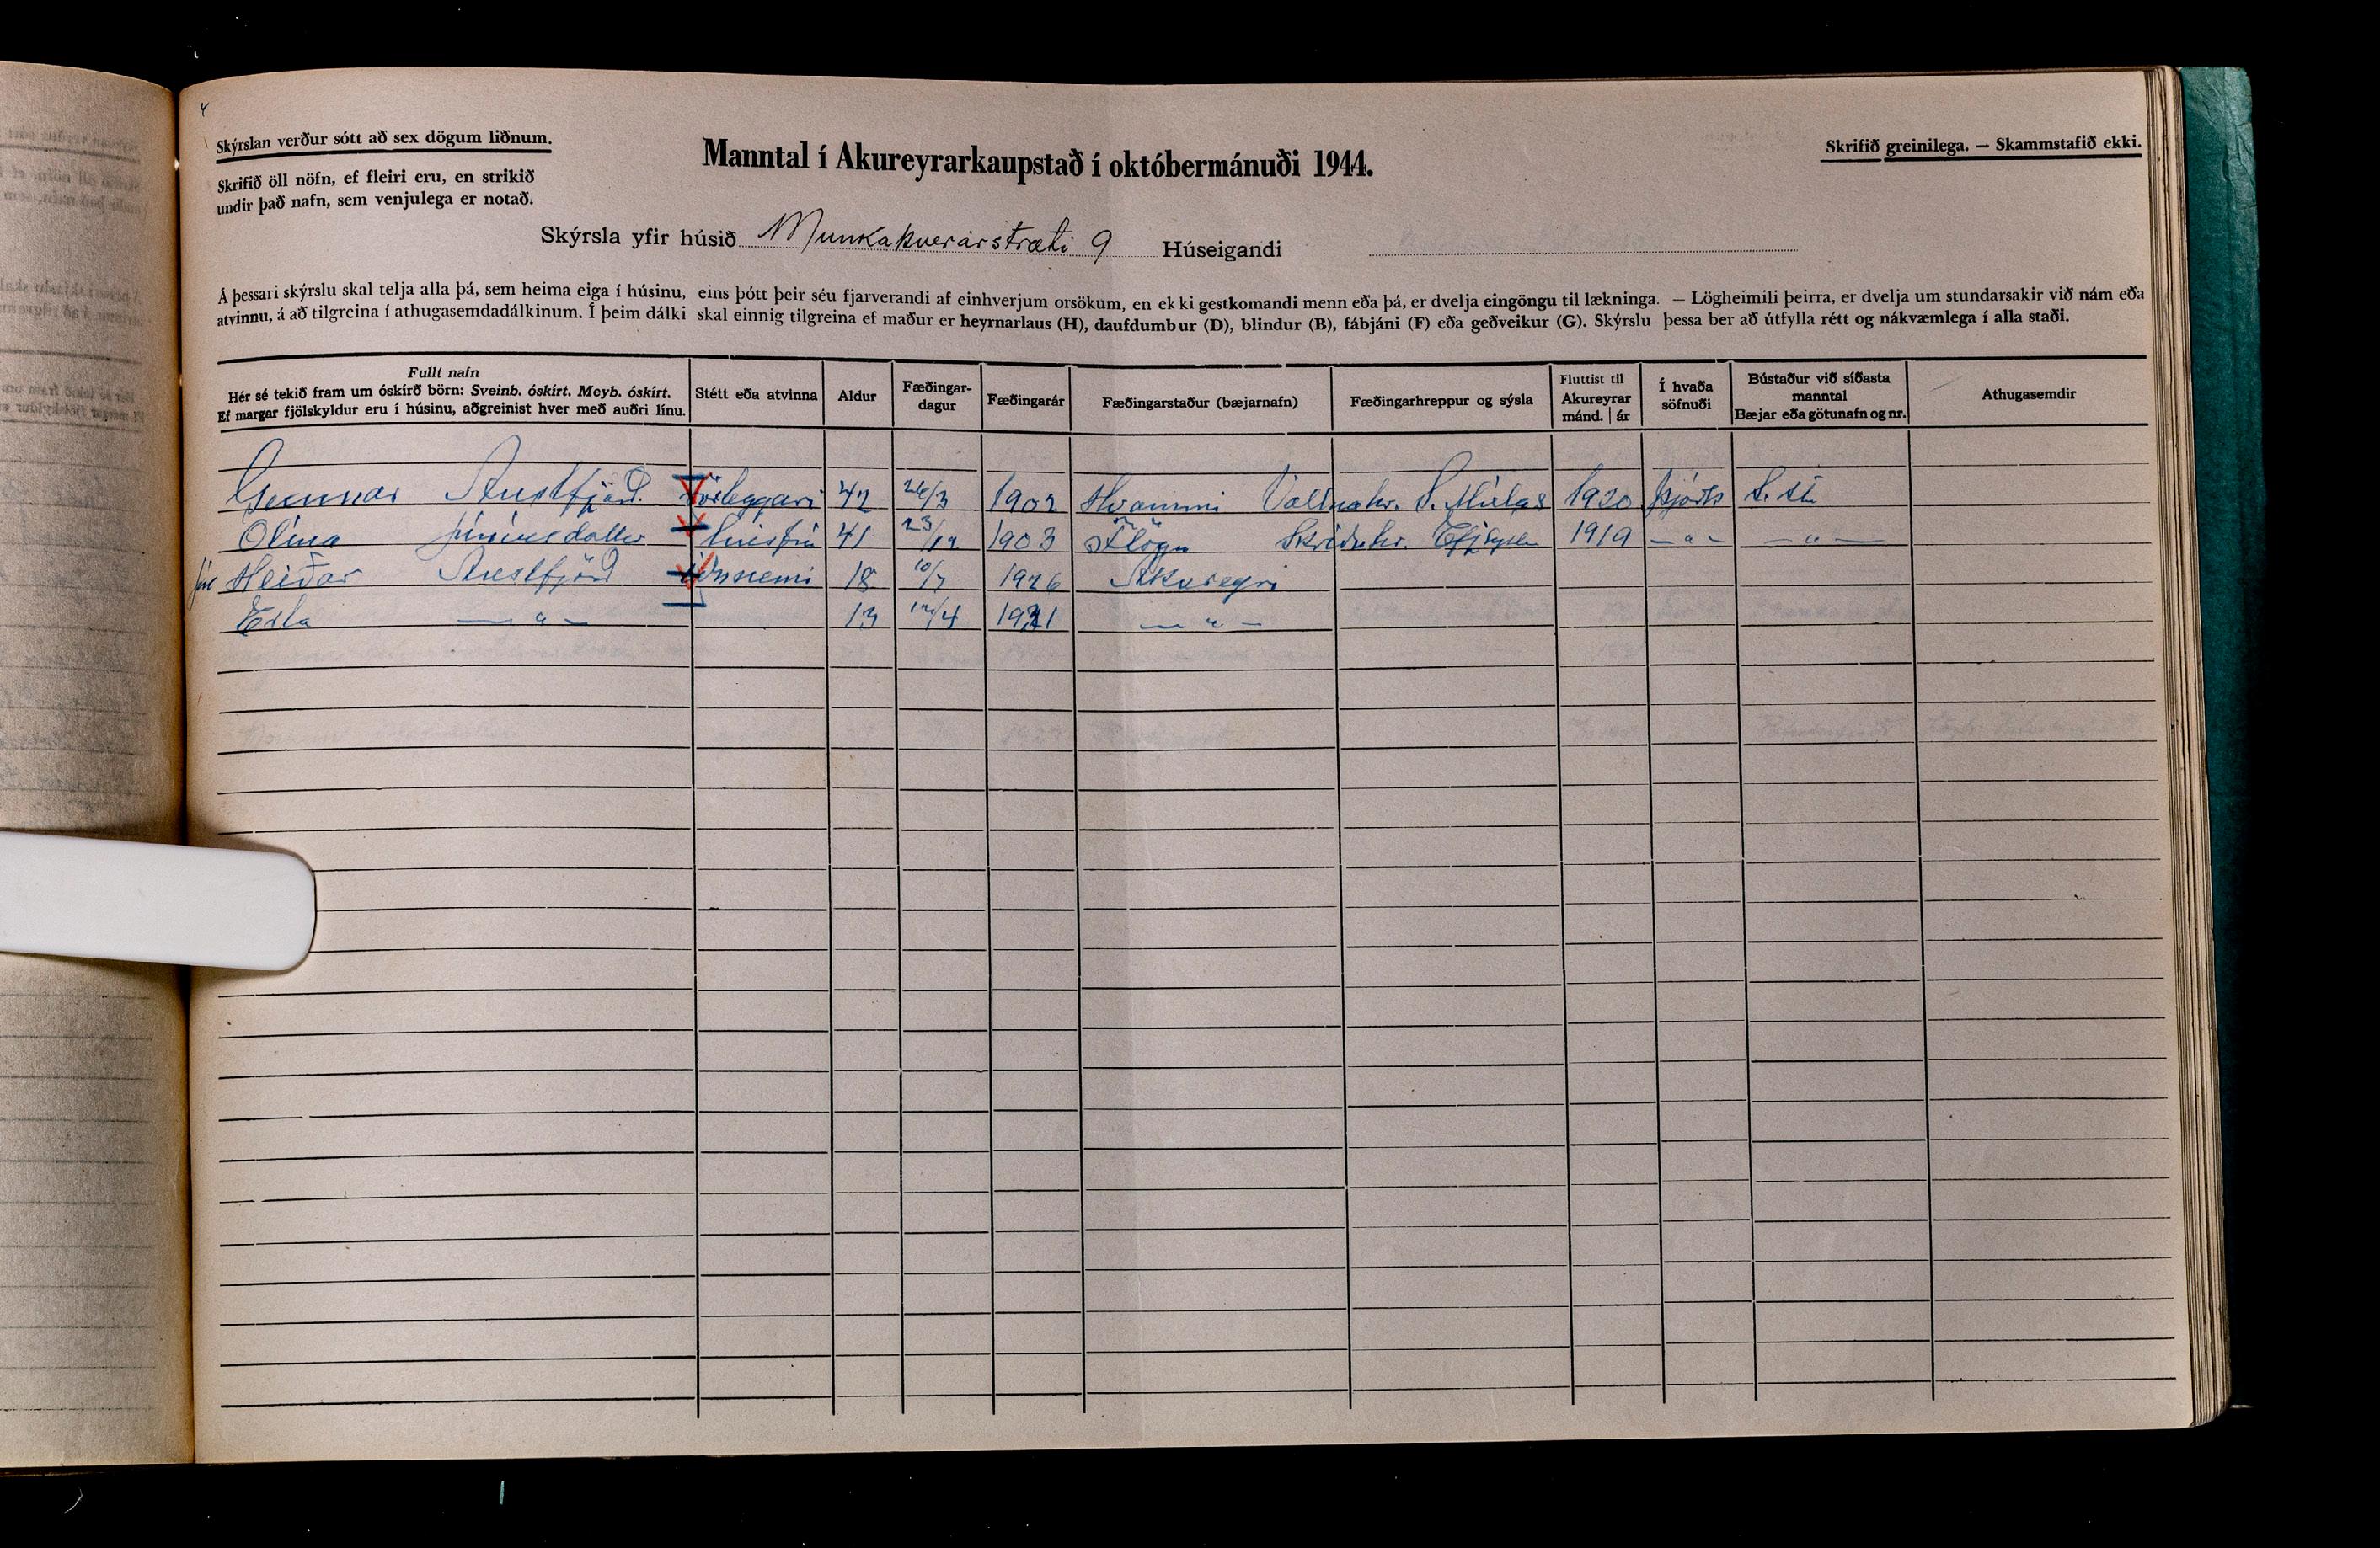 Skýrslan verður sótt að sex dögum liðnum.
Skrifið öll nöfn, ef fleiri eru, en strikið
undir það nafn, sem venjulega er notað.
Manntal í Akureyrarkaupstað í októbermánuði 1944.
Skrifið greinilega. — Skammstafið ekki.
Skýrsla yfir húsið Munkaþverárstræti 9 Húseigandi
Á þessari skýrslu skal telja alla þá, sem heima eiga í húsinu, eins þótt þeir séu fjarverandi af einhverjum orsökum, en ekki gestkomandi menn eða þá, er dvelja eingöngu til lækninga. — Lögheimili þeirra, er dvelja um stundarsakir við nám eða
atvinnu, á að tilgreina í athugasemdadálkinum. Í þeim dálki skal einnig tilgreina ef maður er heyrnarlaus (H), daufdumbur (D), blindur (B), fábjáni (F) eða geðveikur (G). Skýrslu þessa ber að útfylla rétt og nákvæmlega í alla staði.
Fullt nafn
Hér sé tekið fram um óskírð börn: Sveinb. óskírt. Meyb. óskírt.
Ef margar fjölskyldur eru í húsinu, aðgreinist hver með auðri línu.
Stétt eða atvinna
Aldur
Fæðingar-
dagur
Fæðingarár
Fæðingarstaður (bæjarnafn)
Fæðingarhreppur og sýsla
Fluttist til
Akureyrar
mánd. | ár
Í hvaða
söfnuði
Bústaður við síðasta
manntal
Bæjar eða götunafn og nr.
Athugasemdir
Gunnar Austfjörð. Pörleggjari 42 26/3 1902 Hvammi Vallnahr. S. Múlas 1920 Þjóðk S. st.
Olina Júníusdóttir húsfrú 41 23/12 1903 Flögu Skriðuhr. Efjsýslu 1919 — " — — " —
Heiðar Austfjörð Iðnnemi 18 10/7 1926 Akureyri
Erla — " — 13 12/4 1931 — " —